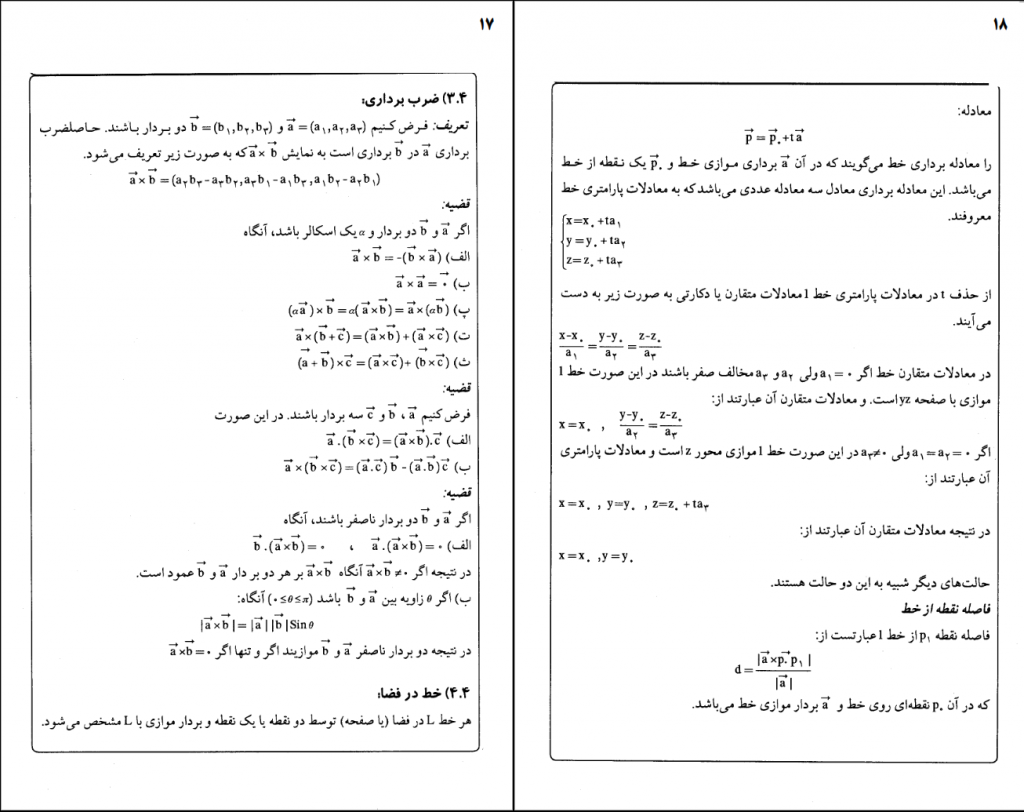 ۱۷
۳.۴) ضرب برداری:
تعریف: فرض کنیم a⃗=(a۱,a۲,a۳) و b⃗=(b۱,b۲,b۳) دو بردار باشند. حاصلضرب
برداری a⃗ در b⃗ برداری است به نمایش a⃗×b⃗ که به صورت زیر تعریف می‌شود.
a⃗×b⃗=(a۲b۳-a۳b۲,a۳b۱-a۱b۳,a۱b۲-a۲b۱)
قضیه:
اگر a⃗ و b⃗ دو بردار و α یک اسکالر باشد، آنگاه
الف) a⃗×b⃗=-(b⃗×a⃗)
ب) a⃗×a⃗=۰⃗
پ) (αa⃗)×b⃗=α(a⃗×b⃗)=a⃗×(αb⃗)
ت) a⃗×(b⃗+c⃗)=(a⃗×b⃗)+(a⃗×c⃗)
ث) (a⃗+b⃗)×c⃗=(a⃗×c⃗)+(b⃗×c⃗)
قضیه:
فرض کنیم a⃗ ، b⃗ و c⃗ سه بردار باشند. در این صورت
الف) a⃗.(b⃗×c⃗)=(a⃗×b⃗).c⃗
ب) a⃗×(b⃗×c⃗)=(a⃗.c⃗)b⃗-(a⃗.b⃗)c⃗
قضیه:
اگر a⃗ و b⃗ دو بردار ناصفر باشند، آنگاه
الف) a⃗.(a⃗×b⃗)=۰ ، b⃗.(a⃗×b⃗)=۰
در نتیجه اگر a⃗×b⃗≠۰ آنگاه a⃗×b⃗ بر هر دو بر دار a⃗ و b⃗ عمود است.
ب) اگر θ زاویه بین a⃗ و b⃗ باشد (۰≤θ≤π) آنگاه:
|a⃗×b⃗|=|a⃗||b⃗|Sinθ
در نتیجه دو بردار ناصفر a⃗ و b⃗ موازیند اگر و تنها اگر a⃗×b⃗=۰
۴.۴) خط در فضا:
هر خط L در فضا (یا صفحه) توسط دو نقطه یا یک نقطه و بردار موازی با L مشخص می‌شود.
۱۸
معادله:
p⃗=p⃗۰+ta⃗
را معادله برداری خط می‌گویند که در آن a⃗ برداری موازی خط و p⃗۰ یک نقطه از خط
می‌باشد. این معادله برداری معادل سه معادله عددی می‌باشد که به معادلات پارامتری خط
معروفند.
x=x۰+ta۱
y=y۰+ta۲
z=z۰+ta۳
از حذف t در معادلات پارامتری خط l معادلات متقارن یا دکارتی به صورت زیر به دست
می‌آیند.
(x-x۰)/a۱=(y-y۰)/a۲=(z-z۰)/a۳
در معادلات متقارن خط اگر a۱=۰ ولی a۲ و a۳ مخالف صفر باشند در این صورت خط l
موازی با صفحه yz است. و معادلات متقارن آن عبارتند از:
x=x۰ , (y-y۰)/a۲=(z-z۰)/a۳
اگر a۱=a۲=۰ ولی a۳≠۰ در این صورت خط l موازی محور z است و معادلات پارامتری
آن عبارتند از:
x=x۰ , y=y۰ , z=z۰+ta۳
در نتیجه معادلات متقارن آن عبارتند از:
x=x۰ ,y=y۰
حالت‌های دیگر شبیه به این دو حالت هستند.
فاصله نقطه از خط
فاصله نقطه p۱ از خط l عبارتست از:
d=|a⃗×p۰p۱|/|a⃗|
که در آن p۰ نقطه‌ای روی خط و a⃗ بردار موازی خط می‌باشد.